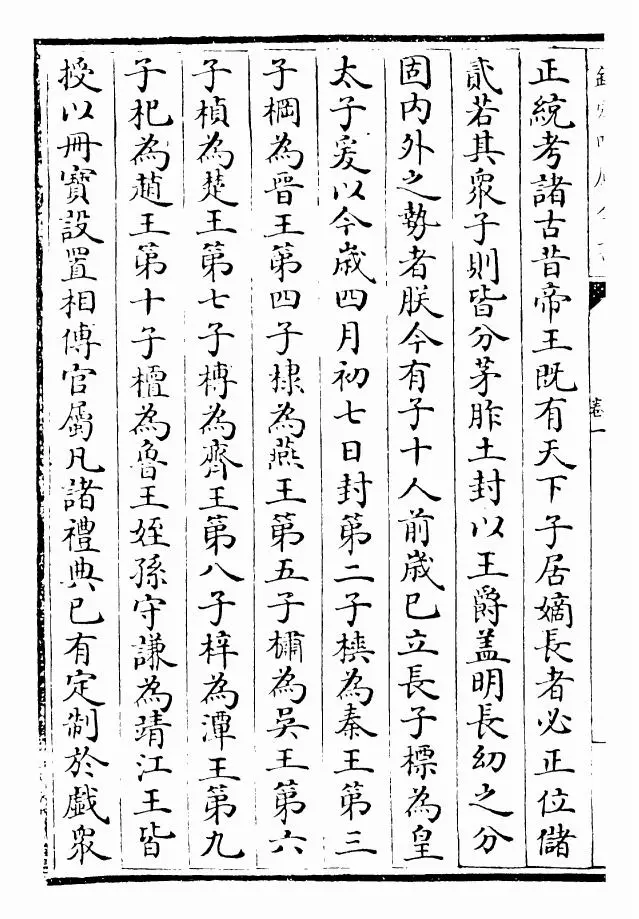 正統考諸古昔帝王既有天下子居嫡長者必正位儲
貳若其衆子則皆分茅胙土封以王爵盖明長幼之分
固内外之勢者朕今有子十人前歳已立長子標為皇
太子爰以今歳四月初七日封第二子樉為秦王第三
子棡為晋王第四子棣為燕王第五子橚為吳王第六
子楨為楚王第七子榑為齊王第八子梓為潭王第九
子𣏌為趙王第十子檀為魯王姪孫守謙為靖江王皆
授以冊寶設置相傅官屬凡諸禮典已有定制於戲衆
卷一